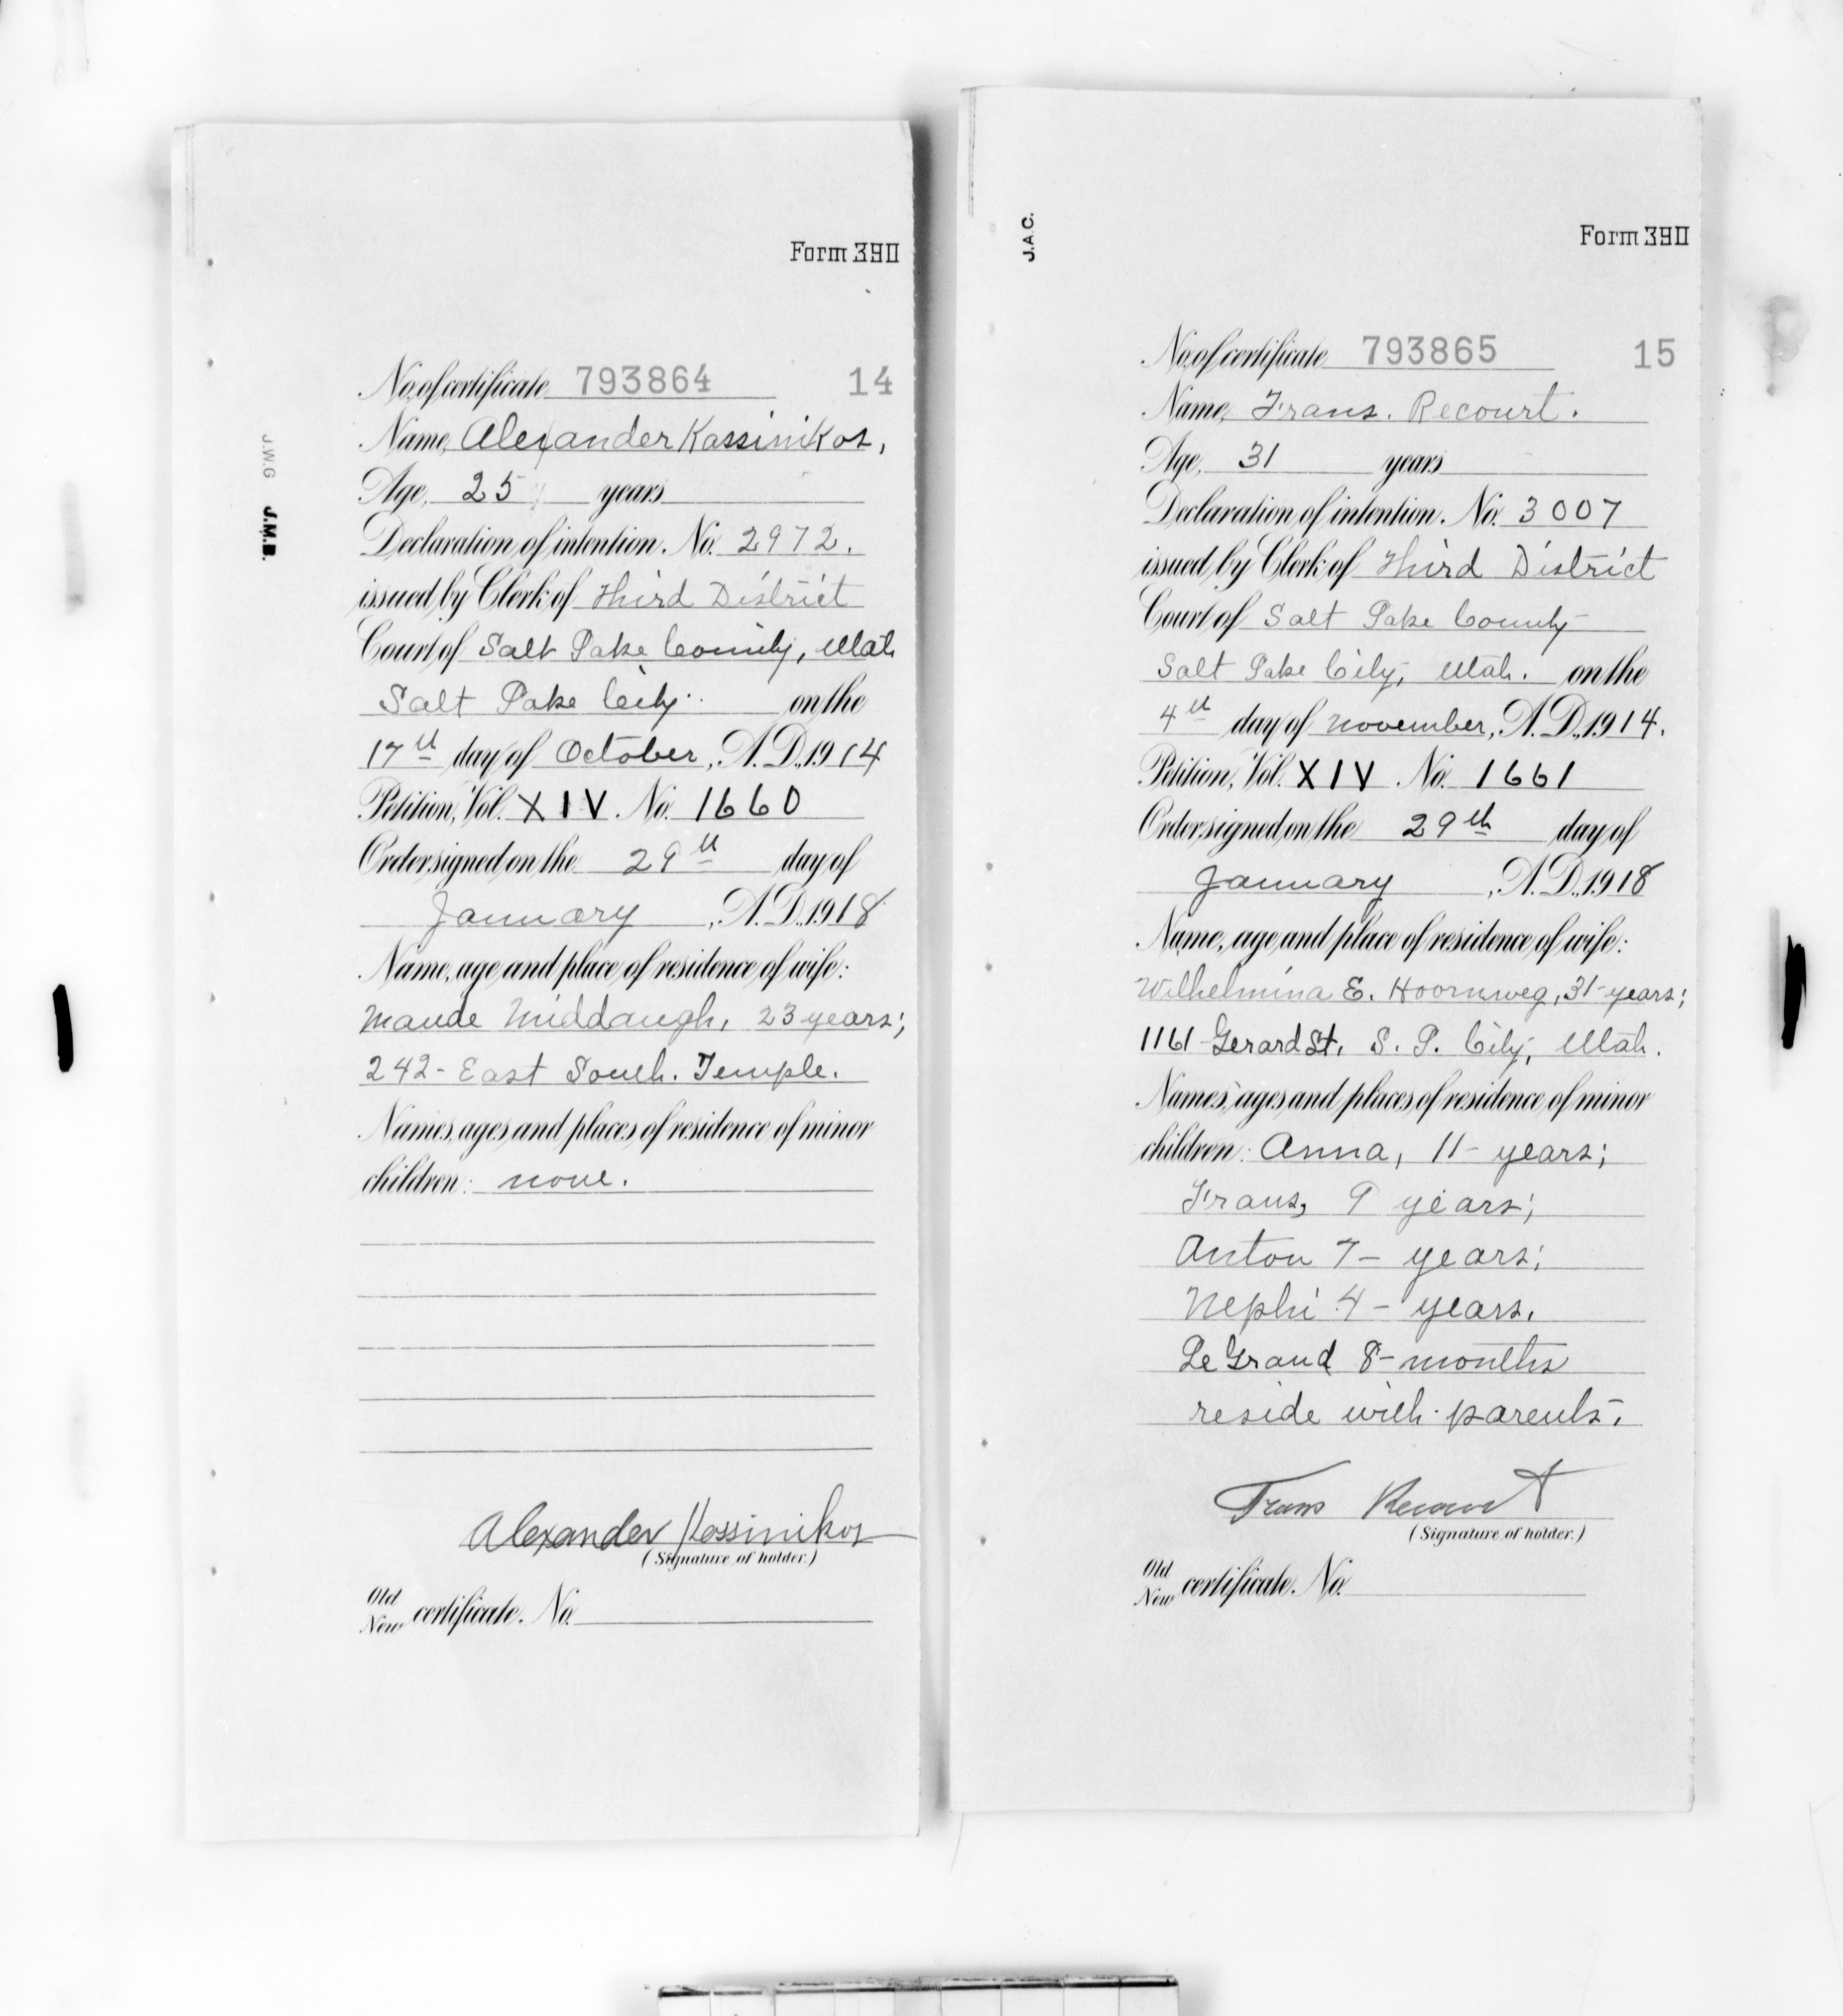 Form 390
J.W.G J.M.B.
No. of certificate 793864 14
Name, Alexander Kassinikos,
Age, 25 years
Declaration of intention. No. 2972.
issued by Clerk of Third District
Court of Salt Lake County, Utah
Salt Lake City. on the
17th day of October, A.D. 1914
Petition, Vol. XIV. No. 1660
Order signed on the 29th day of
January, A.D. 1918
Name, age and place of residence of wife:
Maude Middaugh, 23 years;
242 - East South. Temple.
Names, ages and places of residence of minor
children: none.
Alexander Kossinikos
(Signature of holder.)
Old
New certificate. No.
J.A.C.
Form 390
No. of certificate 793865 15
Name, Frans. Recourt.
Age, 31 years
Declaration of intention. No. 3007
issued by Clerk of Third District
Court of Salt Lake County
Salt Lake City, Utah. on the
4th day of November, A.D. 1914.
Petition, Vol. XIV No. 1661
Order signed on the 29th day of
January, A.D. 1918
Name, age and place of residence of wife:
Wilhelmina E. Hoornweg, 31-years;
1161 - Gerard St, S. L. City, Utah.
Names, ages and places of residence of minor
children: Anna, 11 - years;
Frans, 9 years;
Anton 7 - years;
Nephi 4 - years.
Le Grand 8 - months
reside with parents.
Frans Recourt
(Signature of holder.)
Old
New certificate. No.